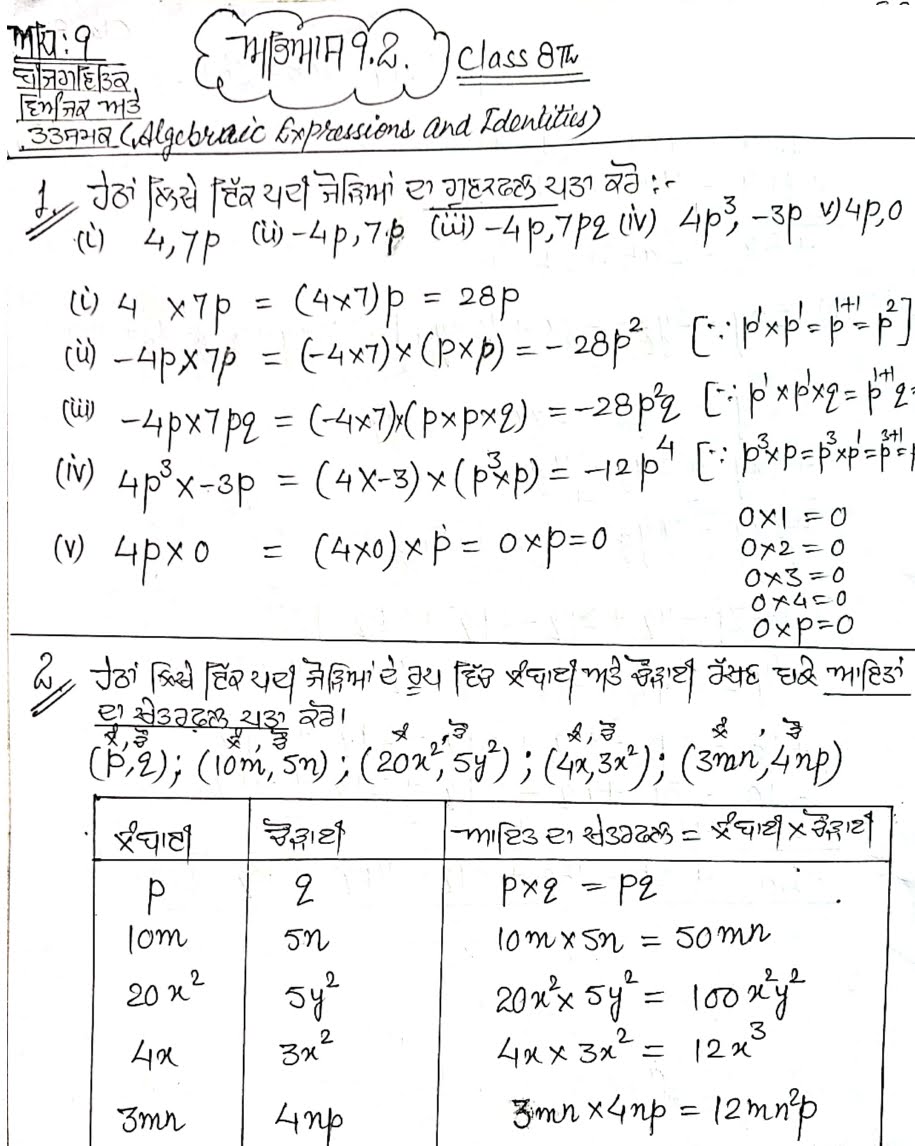 ਅਧਿ: 9
ਅਭਿਆਸ 9.2. Class 8Th
ਬੀਜਗਣਿਤਿਕ
ਵਿਅੰਜਕ ਅਤੇ
ਤਤਸਮਕ (Algebraic Expressions and Identities)
1. ਹੇਠਾਂ ਲਿਖੇ ਇੱਕ ਪਦੀ ਜੋੜਿਆਂ ਦਾ ਗੁਣਨਫਲ ਪਤਾ ਕਰੋ :-
(i) 4, 7p (ii) -4p, 7p (iii) -4p, 7pq (iv) 4p³, -3p v) 4p, 0
(i) 4 × 7p = (4×7)p = 28p
(ii) -4p × 7p = (-4×7)×(p×p) = -28p² [∵ p¹×p¹ = p¹⁺¹ = p²]
(iii) -4p × 7pq = (-4×7)×(p×p×q) = -28p²q [∵ p¹×p¹×q = p¹⁺¹q =
(iv) 4p³ × -3p = (4×-3)×(p³×p) = -12p⁴ [∵ p³×p = p³×p¹ = p³⁺¹ =
(v) 4p × 0 = (4×0)×p = 0×p = 0
0×1 = 0
0×2 = 0
0×3 = 0
0×4 = 0
0×p = 0
2. ਹੇਠਾਂ ਲਿਖੇ ਇੱਕ ਪਦੀ ਜੋੜਿਆਂ ਦੇ ਰੂਪ ਵਿੱਚ ਲੰਬਾਈ ਅਤੇ ਚੌੜਾਈ ਰੱਖਣ ਵਾਲੇ ਆਇਤਾਂ
ਦਾ ਖੇਤਰਫਲ ਪਤਾ ਕਰੋ।
ਲੰ, ਚੌ ਲੰ, ਚੌ ਲੰ, ਚੌ ਲੰ, ਚੌ ਲੰ, ਚੌ
(p, q); (10m, 5n); (20x², 5y²); (4x, 3x²); (3mn, 4np)
ਲੰਬਾਈ ਚੌੜਾਈ ਆਇਤ ਦਾ ਖੇਤਰਫਲ = ਲੰਬਾਈ × ਚੌੜਾਈ
p q p×q = pq
10m 5n 10m × 5n = 50mn
20x² 5y² 20x² × 5y² = 100x²y²
4x 3x² 4x × 3x² = 12x³
3mn 4np 3mn × 4np = 12mn²p